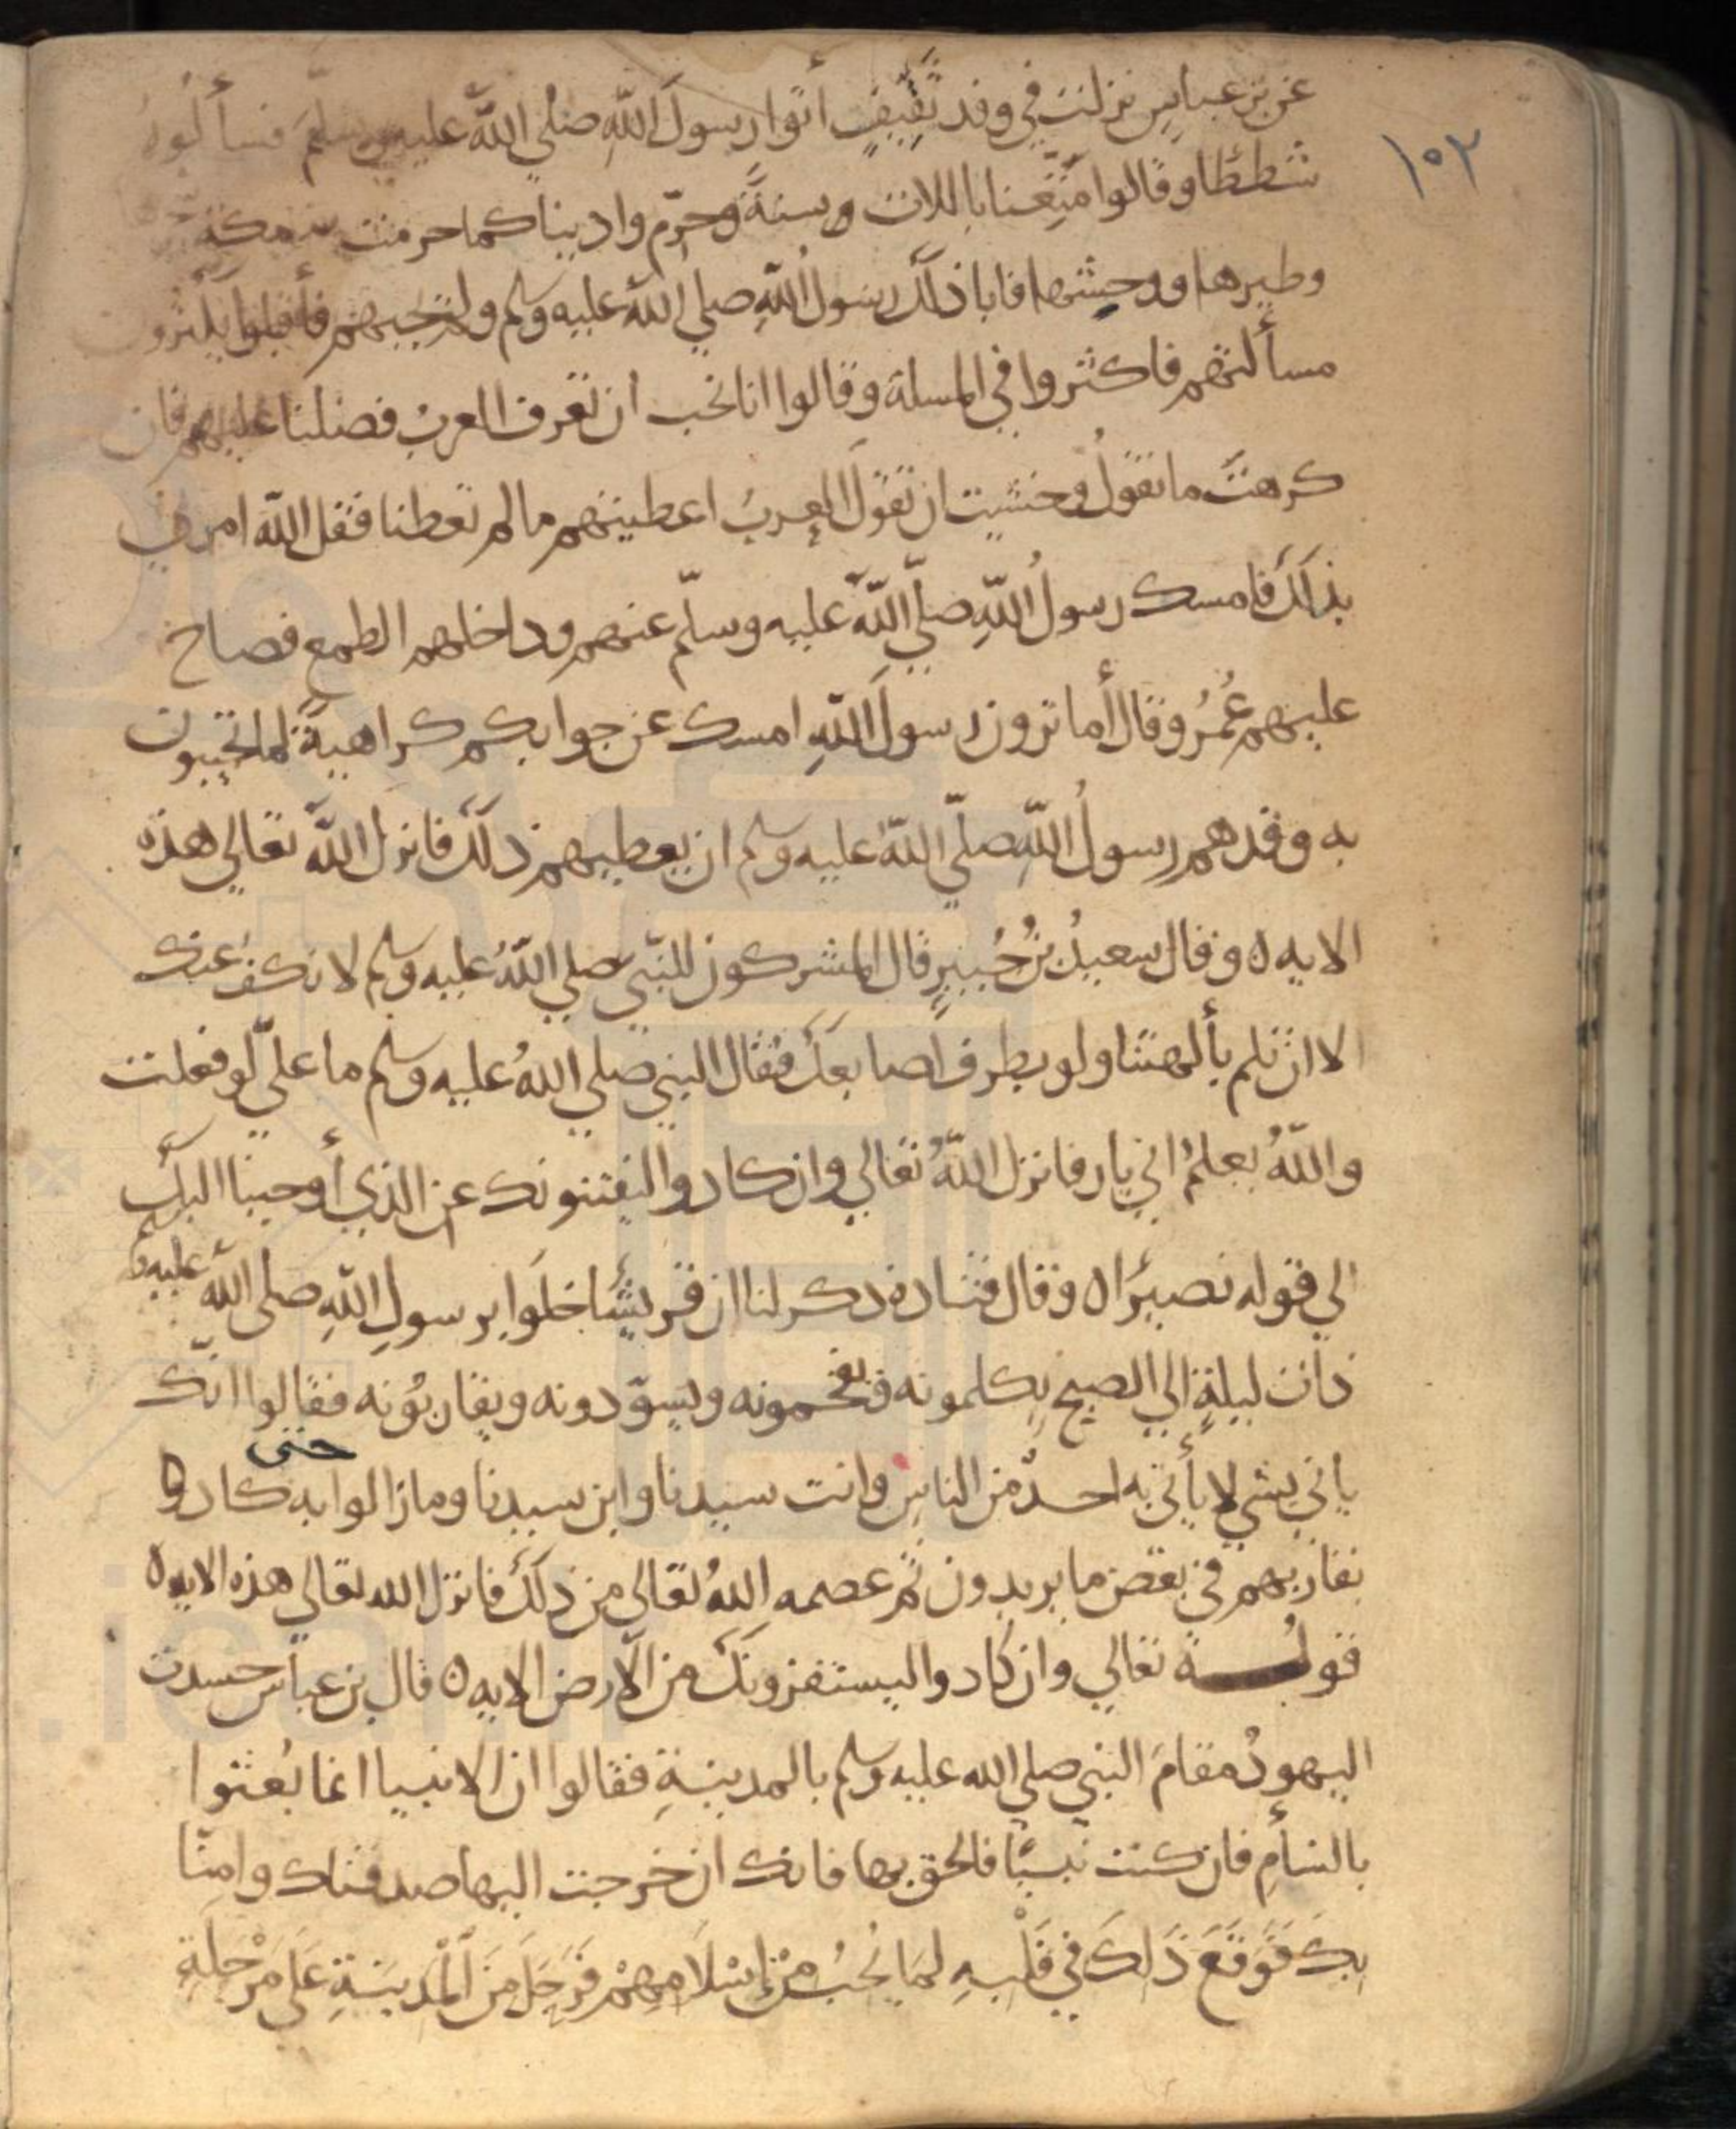 ١٥٢
عن بن عباس نزلت في وفد ثقيف أتوا رسول الله صلي الله عليه وسلم فسألوه
شططا وقالوا متعنا باللات سنة وحرم وادينا كما حرمت مكة
وطيرها ووحشها فابا ذلك رسول الله صلي الله عليه وسلم ولم يجبهم فأقبلوا يكثرون
مسألتهم فاكثروا في المسلة وقالوا انا نحب ان تعرف العرب فضلنا عليهم فان
كرهت ما نقول وخشيت ان تقول العرب اعطيتهم ما لم تعطنا فقل الله امرني
بذلك فامسك رسول الله صلي الله عليه وسلم عنهم وداخلهم الطمع فصاح
عليهم عمر وقال أما ترون رسول الله امسك عن جوابكم كراهية لما تجيبون
به وقد هم رسول الله صلي الله عليه وسلم ان يعطيهم ذلك فانزل الله تعالي هذه
الايه ٥ وقال سعيد بن جبير قال المشركون للنبي صلي الله عليه وسلم لا نكف عنك
الا ان تلم بألهتنا ولو بطرف اصابعك فقال النبي صلي الله عليه وسلم ما علي لو فعلت
والله يعلم اني بار فانزل الله تعالي وان كادوا ليفتنونك عن الذي أوحينا اليك
الي قوله نصيرا ٥ وقال قتادة ذكر لنا ان قريشا خلوا برسول الله صلي الله عليه وسلم
ذات ليلة الي الصبح يكلمونه ويفخمونه ويسودونه ويقاربونه فقالوا انك
تاتي بشي لا يأتي به احد من الناس وانت سيدنا وابن سيدنا وما زالوا به حتى كاد
يقاربهم في بعض ما يريدون ثم عصمه الله تعالي من ذلك فانزل الله تعالي هذه الايه ٥
قوله تعالي وان كادوا ليستفزونك من الارض الايه ٥ قال بن عباس حسدت
اليهود مقام النبي صلي الله عليه وسلم بالمدينة فقالوا ان الانبيا انما بعثوا
بالشأم فان كنت نبيا فالحق بها فانك ان خرجت اليها صدقناك وامنا
بك فَوَقَعَ ذَلِكَ في قَلْبِهِ لِمَا يُحبُ مِنْ إسْلَامِهِمْ فَرَحَلَ مِنَ الْمَدِينَةِ عَلَى مَرْحَلَةٍ